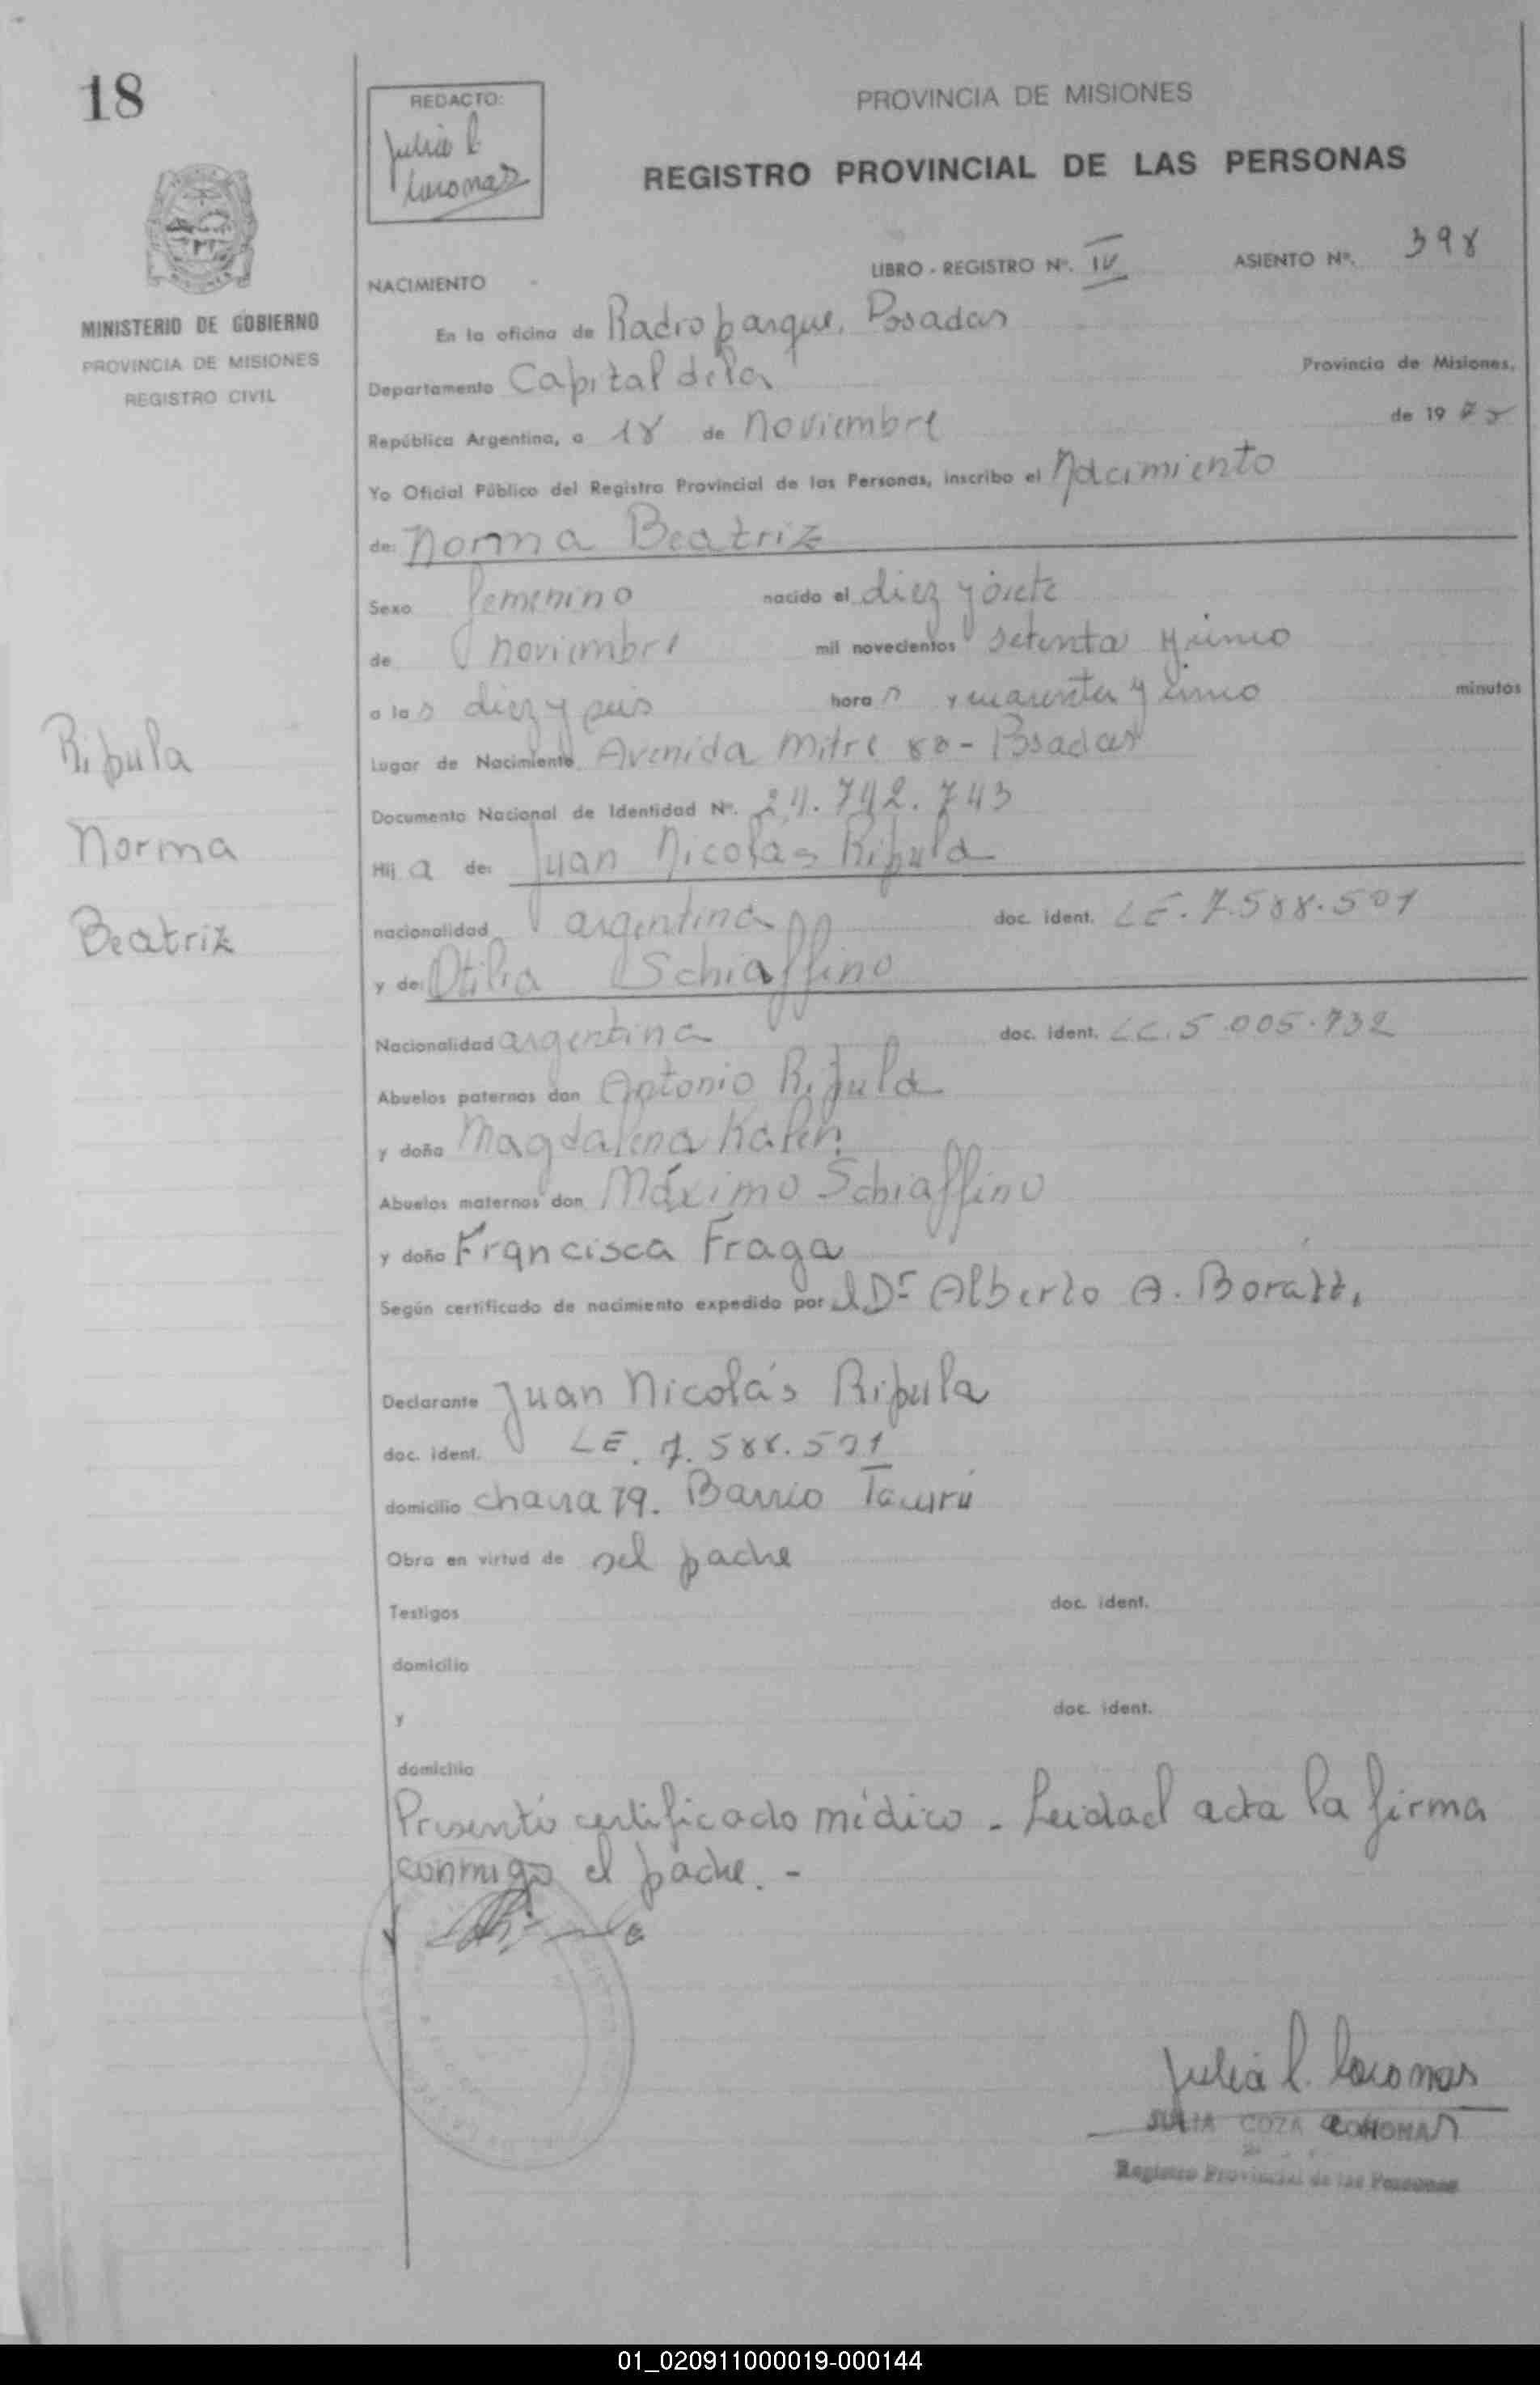 18
REDACTO:
Julia C
Coromas
PROVINCIA DE MISIONES
REGISTRO PROVINCIAL DE LAS PERSONAS
LIBRO - REGISTRO Nº. IV ASIENTO Nº. 398
NACIMIENTO
MINISTERIO DE GOBIERNO
PROVINCIA DE MISIONES
REGISTRO CIVIL
En la oficina de Radioparque, Posadas
Departamento Capital de la Provincia de Misiones,
República Argentina, a 18 de noviembre de 1975
Yo Oficial Público del Registro Provincial de las Personas, inscribo el nacimiento
de: Norma Beatriz
Sexo femenino nacido el diez y siete
de noviembre mil novecientos setenta y cinco
a las diez y seis horas y cuarenta y cinco minutos
Lugar de Nacimiento Avenida Mitre 80 - Posadas
Documento Nacional de Identidad Nº. 24.742.743
Ripula
Norma
Beatriz
Hija de: Juan Nicolás Ripula
nacionalidad argentina doc. ident. LE. 7.588.501
y de: Otilia Schiaffino
Nacionalidad argentina doc. ident. LC. 5.005.732
Abuelos paternos don Antonio Ripula
y doña Magdalena
Abuelos maternos don Máximo Schiaffino
y doña Francisca Fraga
Según certificado de nacimiento expedido por el Dr Alberto A.
Declarante Juan Nicolás Ripula
doc. ident. LE. 7.588.501
domicilio chacra 79. Barrio Tacurú
Obra en virtud de sel padre
Testigos doc. ident.
domicilio
y doc. ident.
domicilio
Presentó certificado médico - Leidad acta la firma
conmigo el padre. -
Julia C. Coromas
JULIA COZA
Registro Provincial de las Personas
01_020911000019-000144